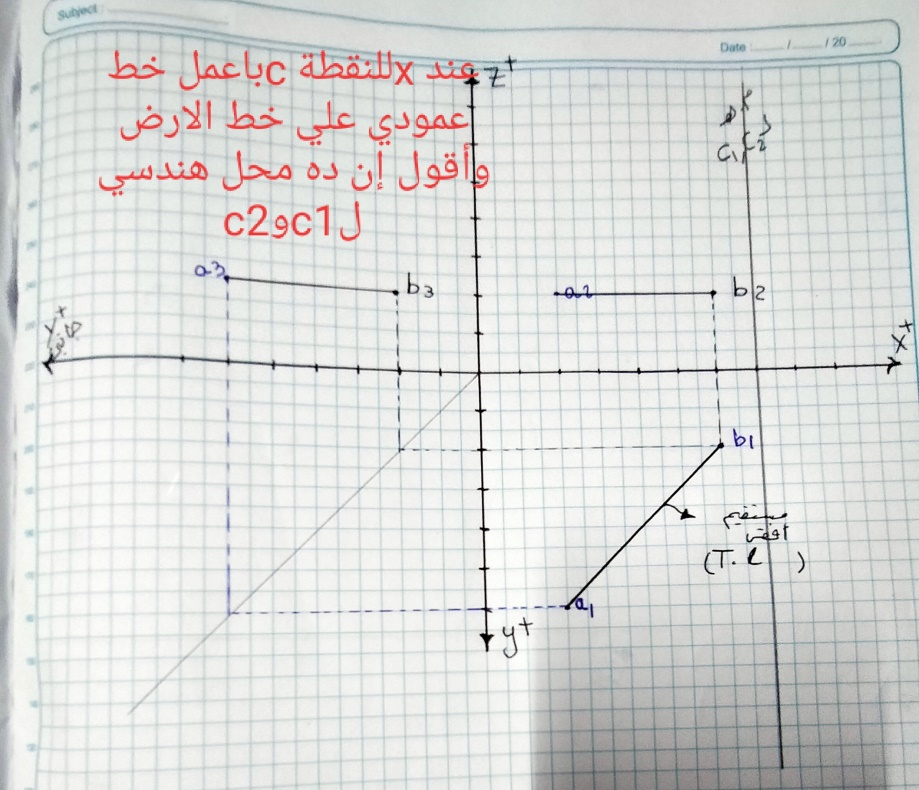 Subject:
Date : / / 20
عند xللنقطة cباعمل خط
عمودي علي خط الارض
وأقول إن ده محل هندسي
لc1وc2
z+
C1 C2
a3
b3
a2
b2
y+
x+
b1
مستقيم
افقى
(T.L)
a1
y+